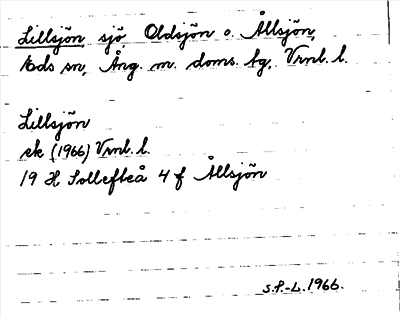 Lillsjön, sjö, Oldsjön o. Ållsjön,
Eds sn, Ång. m. doms. lg, Vrnl. l.
Lillsjön
ek (1966) Vrnl. l.
19 H Sollefteå 4 f Ållsjön
S.P.-L. 1966.